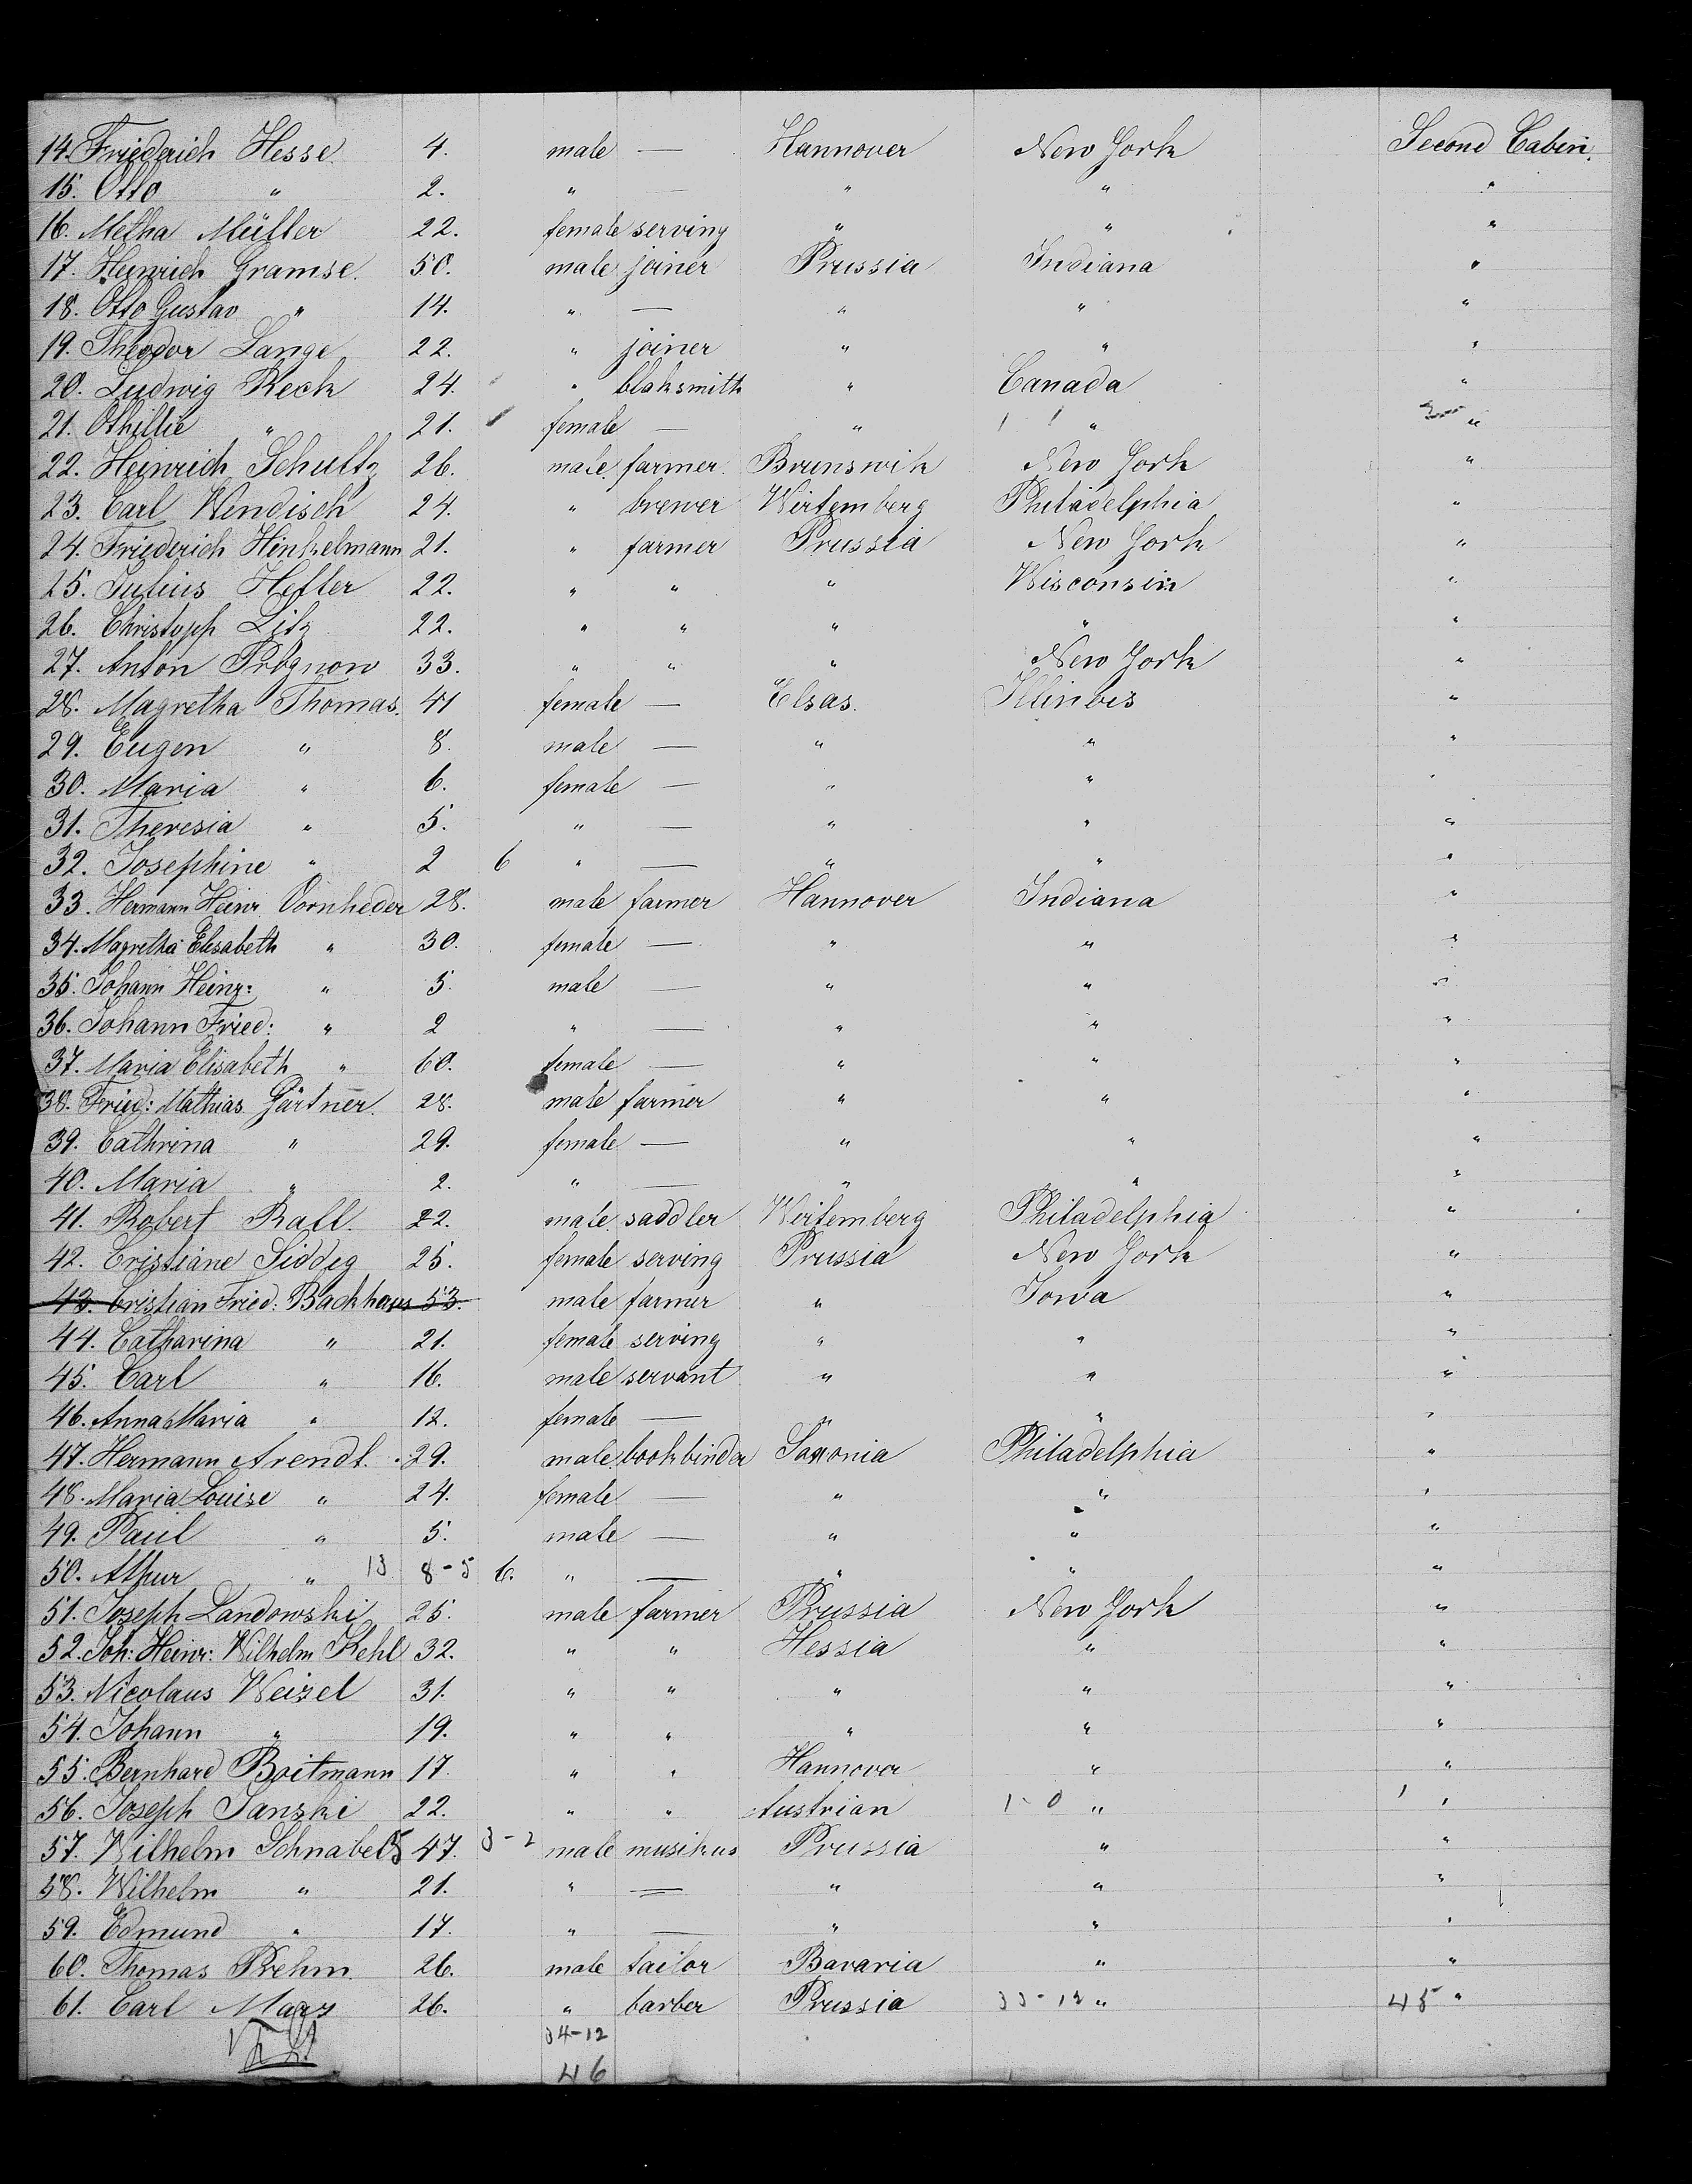 14. Friederich Hesse 4. male — Hannover New York Second Cabin.
15. Otto " 2. " — " " "
16. Metha Müller 22. female serving " " "
17. Heinrich Gramse. 50. male joiner Prussia Indiana "
18. Otto Gustav " 14. " — " " "
19. Theodor Lange 22. " joiner " " "
20. Ludwig Reck 24. " blaksmith " Canada "
21. Othillie " 21. female — " " "
22. Heinrich Schultz 26. male. farmer. Brunswik New York "
23. Carl Wendisch 24. " brewer Wirtemberg Philadelphia "
24. Friederich Hinkelmann 21. " farmer Prussia New York "
25. Julius Heller 22. " " " Wisconsin "
26. Christoph Litz 22. " " " " "
27. Anton Prognow 33. " " " New York "
28. Magretha Thomas. 41 female — Elsas. Illinois "
29. Eugen " 8. male — " " "
30. Maria " 6. female — " " "
31. Theresia " 5. " — " " "
32. Josephine " 2 6 " — " " "
33. Hermann Heinr Vornheder 28. male farmer Hannover Indiana "
34. Magretha Elisabeth " 30. female — " " "
35. Johann Heinr: " 5. male — " " "
36. Johann Fried: " 2 " — " " "
37. Maria Elisabeth " 60. female — " " "
38. Fried: Mathias Gärtner. 28. male farmer " " "
39. Cathrina " 29. female — " " "
40. Maria " 2. " — " " "
41. Robert Rall. 22. male. saddler Wirtemberg Philadelphia "
42. Cristiane Siddeg 25. female serving Prussia New York "
43. Cristian Fried: Backhaus 53. male farmer " Iowa "
44. Catharina " 21. female serving " " "
45. Carl " 16. male servant " " "
46. Anna Maria " 12. female — " " "
47. Hermann Arendt. 29. male. bookbinder Saxonia Philadelphia "
48. Maria Louise " 24. female — " " "
49. Paul " 5. male — " " "
50. Athur " 13 8-5 6. " — " " "
51. Joseph Landowski 25. male farmer Prussia New York "
52. Joh: Heinr: Wilhelm Kehl 32. " " Hessia " "
53. Nicolaus Weizel 31. " " " " "
54. Johann " 19. " " " " "
55. Bernhard Boitmann 17. " " Hannover " "
56. Joseph Janski 22. " " Austrian 1-0 " "
57. Wilhelm Schnabel 47. 3-2 male musikus Prussia " "
58. Wilhelm " 21. " — " " "
59. Edmund " 17. " — " " "
60. Thomas Prehm. 26. male tailor Bavaria " "
61. Carl Marx 26. " barber Prussia 33-12 " 45 "
34-12
46